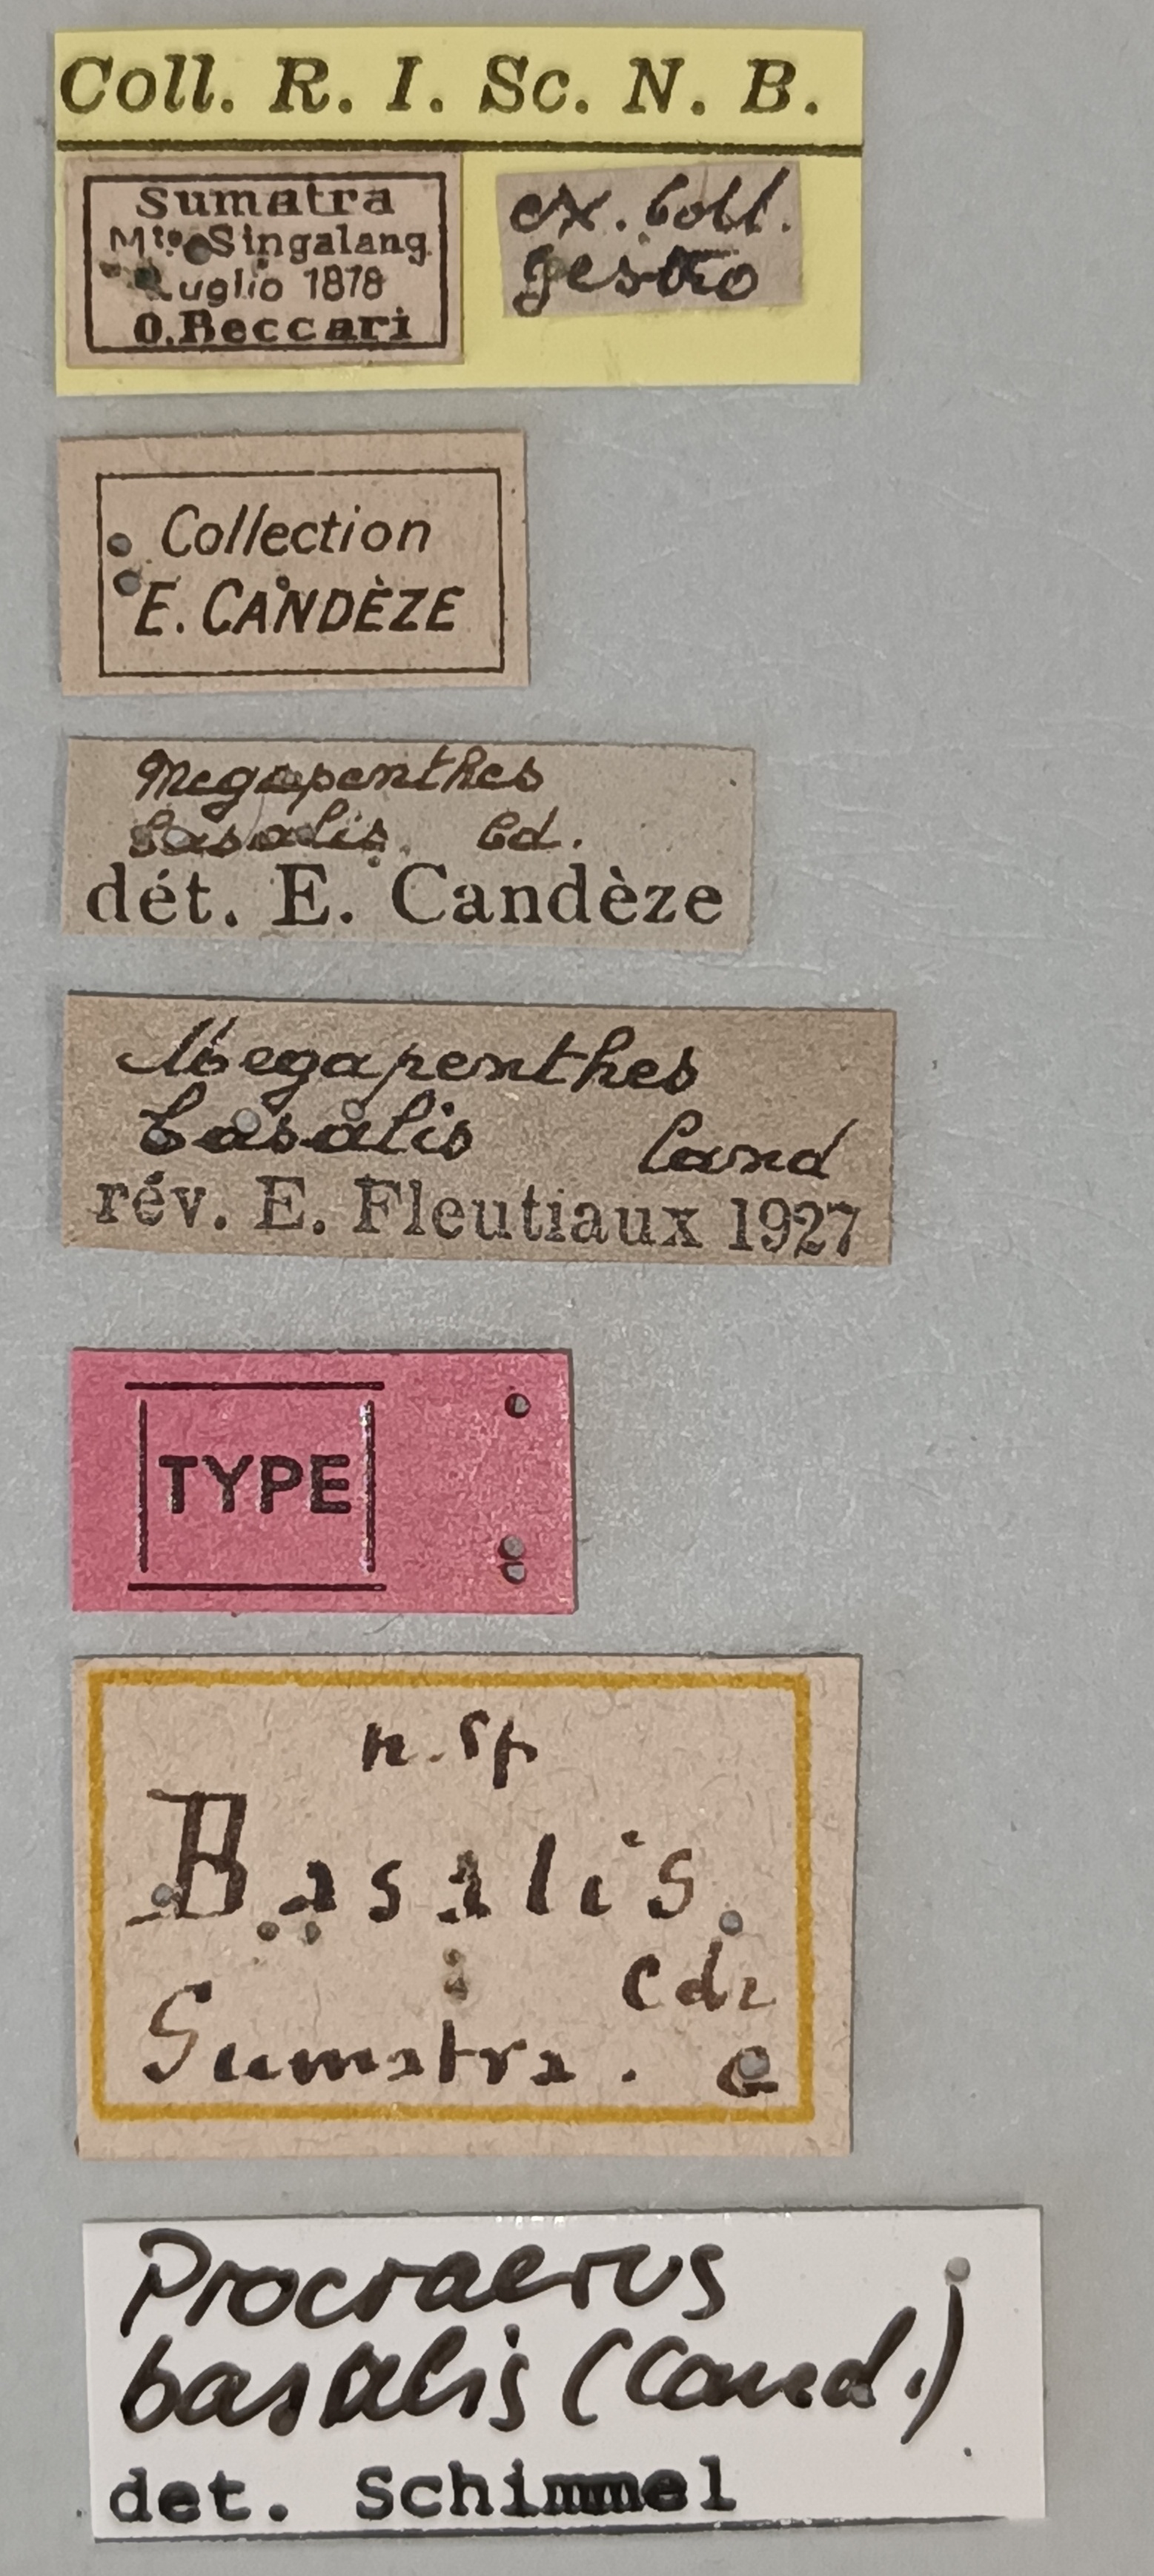 Coll. R. I. Sc. N. B.
Sumatra
Mte. Singalang
Luglio 1878
O. Beccari
ex. Coll.
Gestro
Collection
E. CANDÈZE
Megapenthes
basalis. Cd.
dét. E. Candèze
Megapenthes
basalis Cand
rév. E. Fleutiaux 1927
TYPE
n. sp
Basalis.
Cdz
Sumatra. e
Procraerus
basalis (Cand.)
det. Schimmel